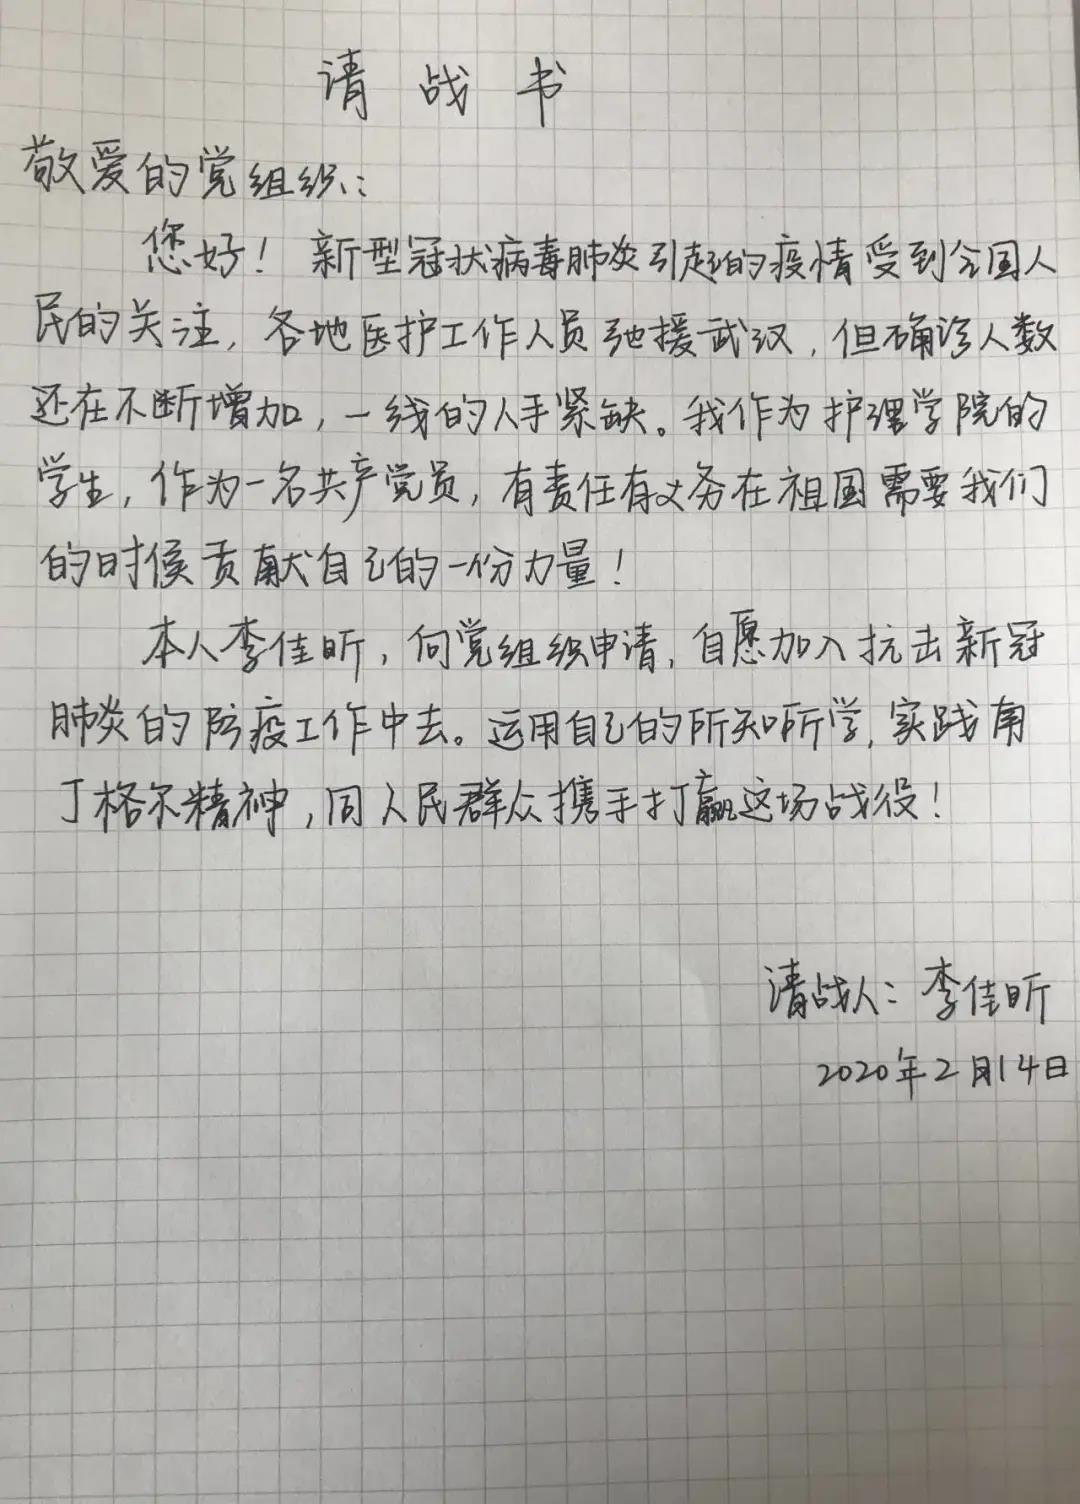 请战书
敬爱的党组织:
您好！新型冠状病毒肺炎引起的疫情受到全国人
民的关注，各地医护工作人员驰援武汉，但确诊人数
还在不断增加，一线的人手紧缺。我作为护理学院的
学生，作为一名共产党员，有责任有义务在祖国需要我们
的时候贡献自己的一份力量！
本人李佳昕，向党组织申请，自愿加入抗击新冠
肺炎的防疫工作中去。运用自己的所知所学，实践南
丁格尔精神，同人民群众携手打赢这场战役！
请战人：李佳昕
2020年2月14日